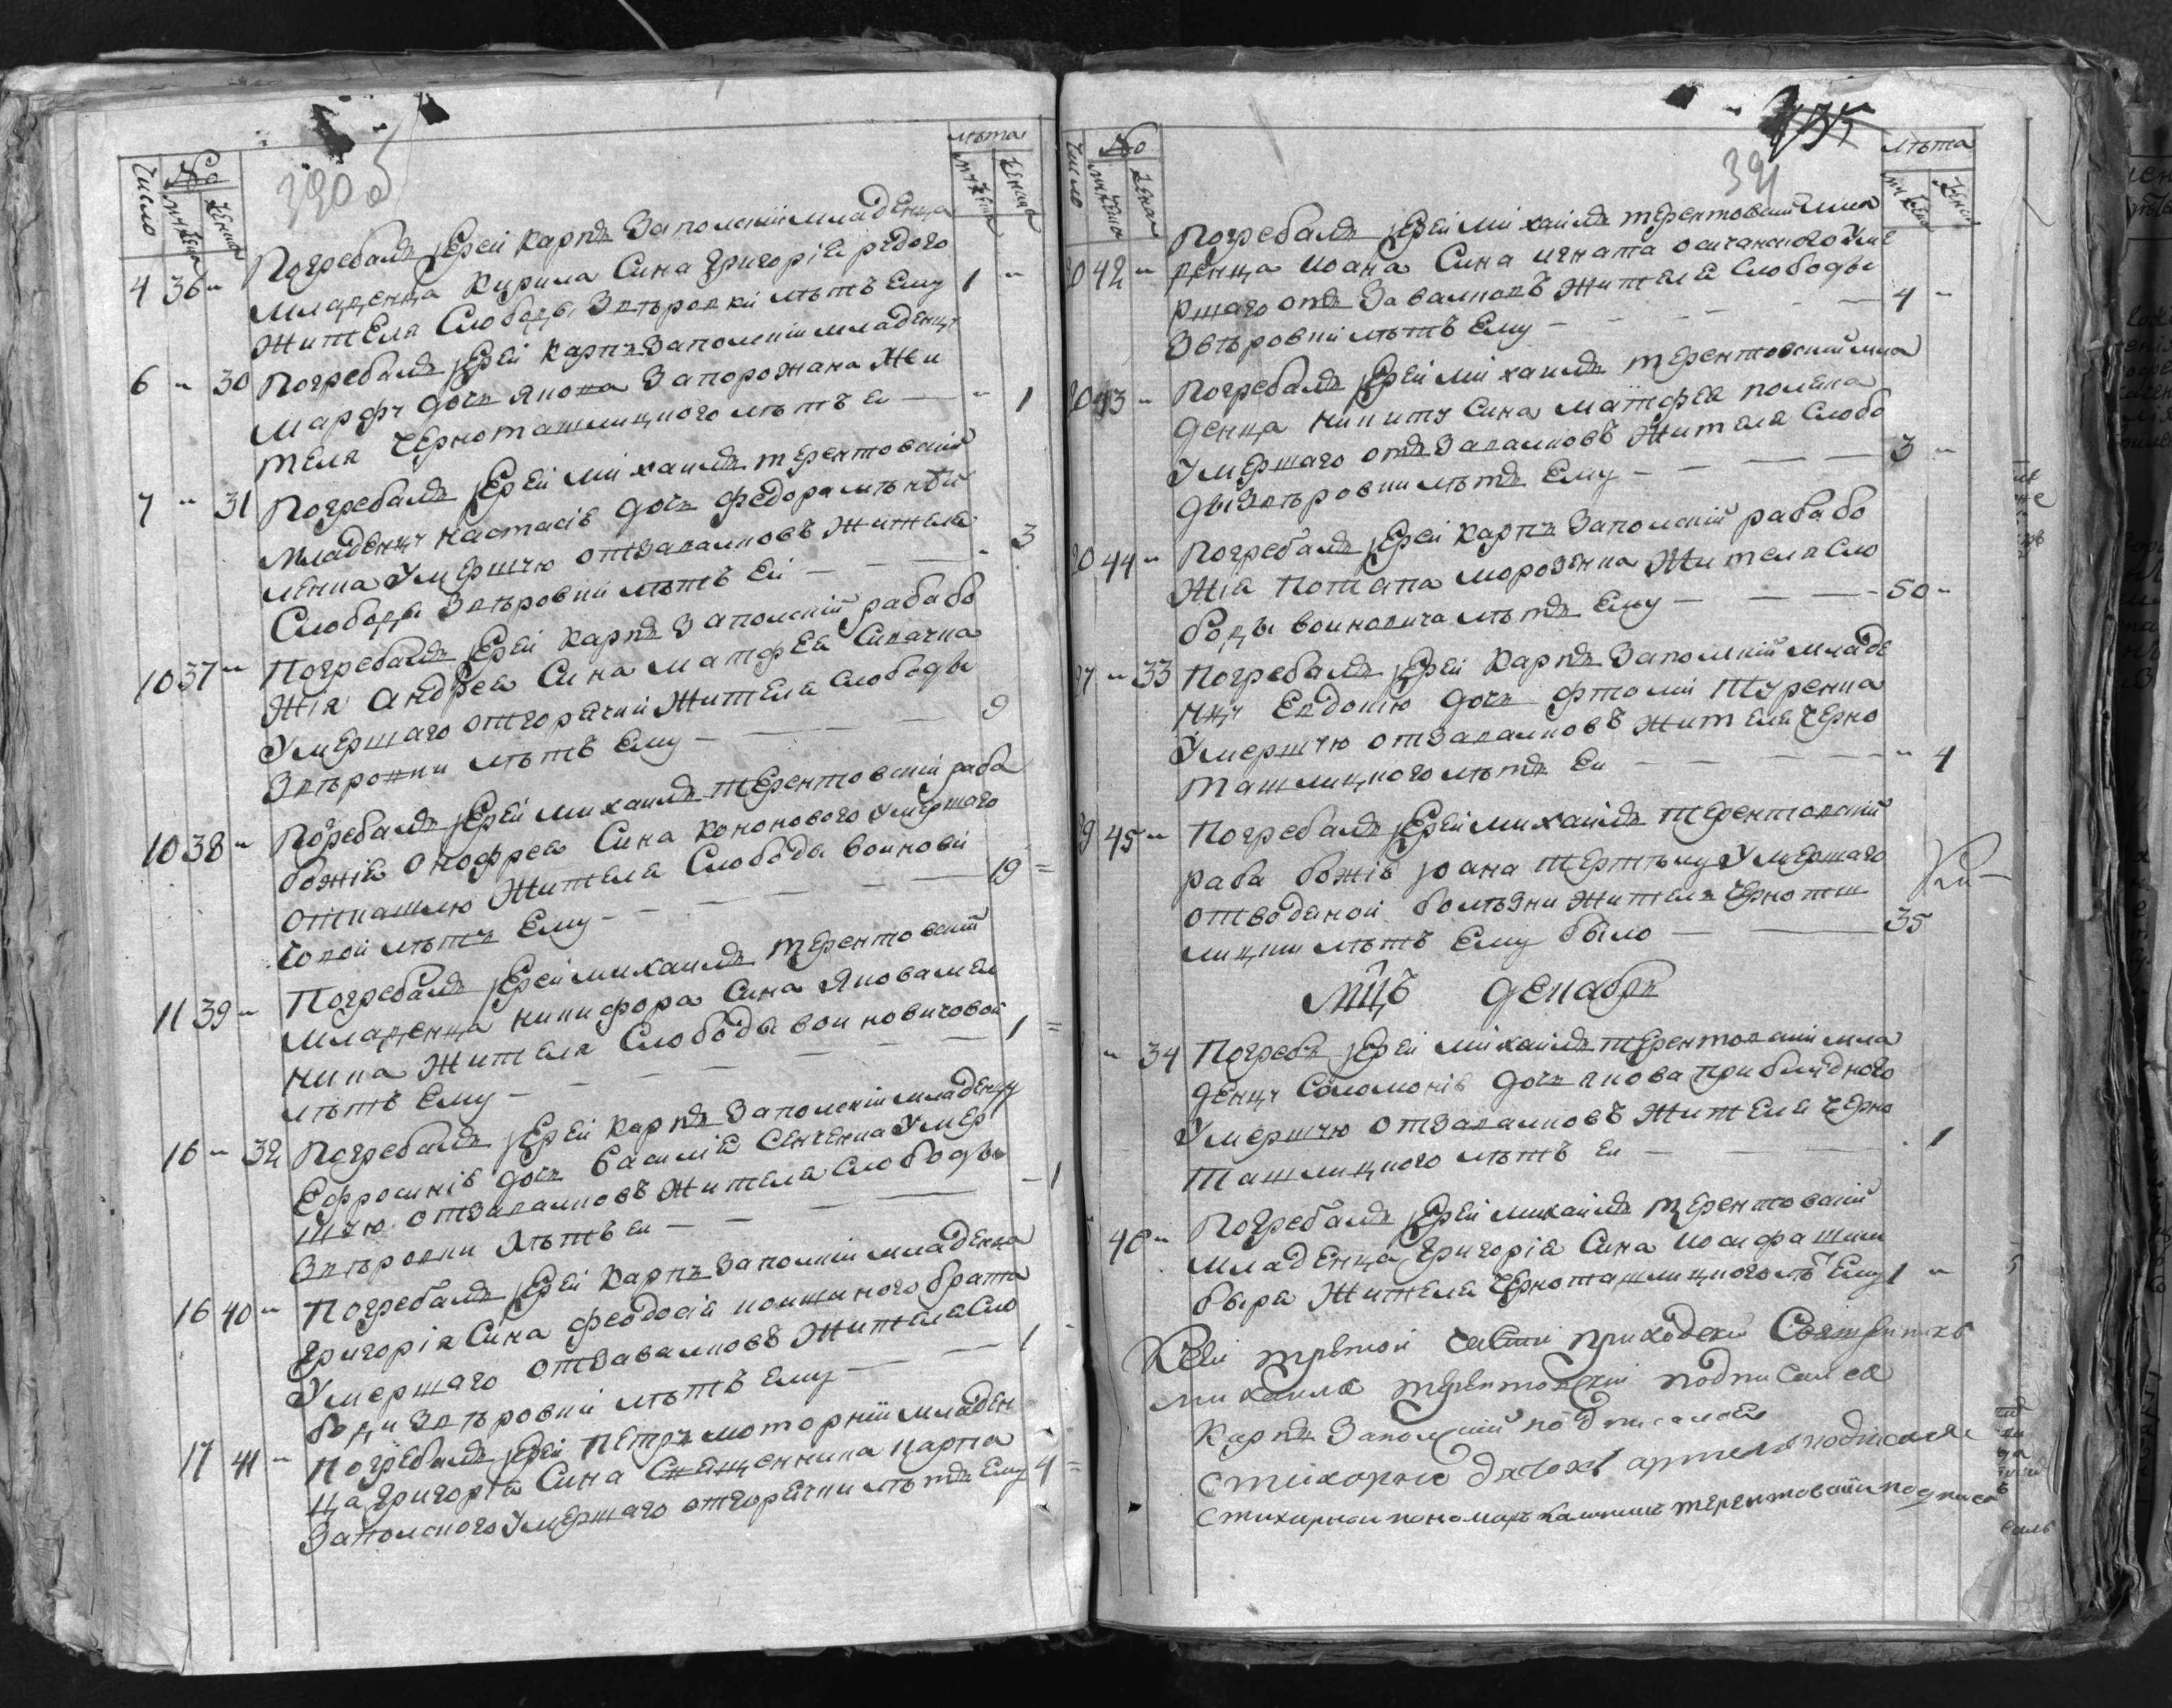 390 об
Число № лѣта
мужеска женска мужеска женска
4 36 " Погребалъ Іерей Карпъ Заполскій младенца
младенца Кирила Сина Григорія рудого
жителя Слободы Звѣровки лѣтъ Ему 1 "
6 " 30 Погребалъ Іерей Карпъ Заполскій младенцу
марфу дочь Якова Запорожана Жи
теля Черноташлицкого лѣтъ Ей — " 1
7 " 31 Погребалъ Іерей Міхаилъ терентовскій
младенцу настасію дочь федора
ленка Умершую отвваллковъ Жителя
Слободы Звѣровки лѣтъ Ей — — — " 3
10 37 " Погребалъ Іерей Карпъ Заполскій раба бо
жія Андрея Сина матфея Сикачка
Умершаго отгорячки Жителя Слободы
Звѣровки лѣтъ Ему — — — 9
10 38 " Погребалъ Іерей Михаилъ терентовскій раба
божія Онофрея Сина кононового Умершаго
откашлю Жителя Слободы воинови
човой лѣтъ Ему — — — — 19 =
11 39 " Погребалъ Іерей михаилъ терентовскій
младенца никифора Сина Якова мел
ника Жителя Слободы воиновичовой
лѣтъ Ему — — — — 1 =
16 " 32 Погребалъ Іерей Карпъ Заполскій младенцу
Ефросинію дочь Василія Сенченка Умер
шую отзавалковъ Жителя Слободы
Звѣровки лѣтъ Ей — — — — 1
16 40 " Погребалъ Іерей Карпъ Заполскій младенца
Григорія Сина феодосія брата
Умершаго отзавалковъ Жителя Сло
боди Звѣровки лѣтъ Ему — — 1
17 41 " Погребалъ Іерей Петръ моторній младен
ца Григорія Сина Священника Карпа
Заполского Умершаго отгорячки лѣтъ Ему 4 =
391
Число № лѣта
мужеска женска мужеска женска
20 42 " Погребалъ Іерей Міхаилъ терентовскій мла
денца Иоана Сина игната Уме
ршаго отъ Завалковъ Жителя Слободы
Звѣровки лѣтъ Ему — — — — 4 "
20 43 " Погребалъ Іерей Міхаилъ терентовскій мла
денца никиту Сина матфея
Умершаго отъ Завалковъ Жителя Слобо
ды Звѣровки лѣтъ Ему — — — — 3 "
20 44 " Погребалъ Іерей Карпъ Заполскій раба бо
жія Потапа морозенка Жителя Сло
боды воиновича лѣтъ Ему — — — 50 "
27 " 33 Погребалъ Іерей Карпъ Заполскій младе
нцу Евдокію дочь Туренка
Умершую отзавалковъ Жителя Черно
ташлицкого лѣтъ Ей — — — — " 4
29 45 " Погребалъ Іерей михаилъ терентовскій
раба божія Іоана Умершаго
отводяной болѣзни Жителя Чернота
лицки лѣтъ Ему было — — 35
Мцъ декабрь
" 34 Погребъ Іерей Міхаилъ терентовскій мла
денцу Соломонію дочь якова приблудного
Умершую отзавалковъ Жителя Черно
ташлицкого лѣтъ Ей — — — — 1
46 " Погребалъ Іерей михаилъ терентовскій
младенца Григорія Сина иосифа
быра Жителя Черноташлицкого лѣтъ Ему 1 "
Ксей третой части приходски Священникъ
михаилъ терентовскій подписался
Карпъ Заполскій подписался
Стихарній дячокъ подписался
Стихарной пономаръ терентовскій подписа